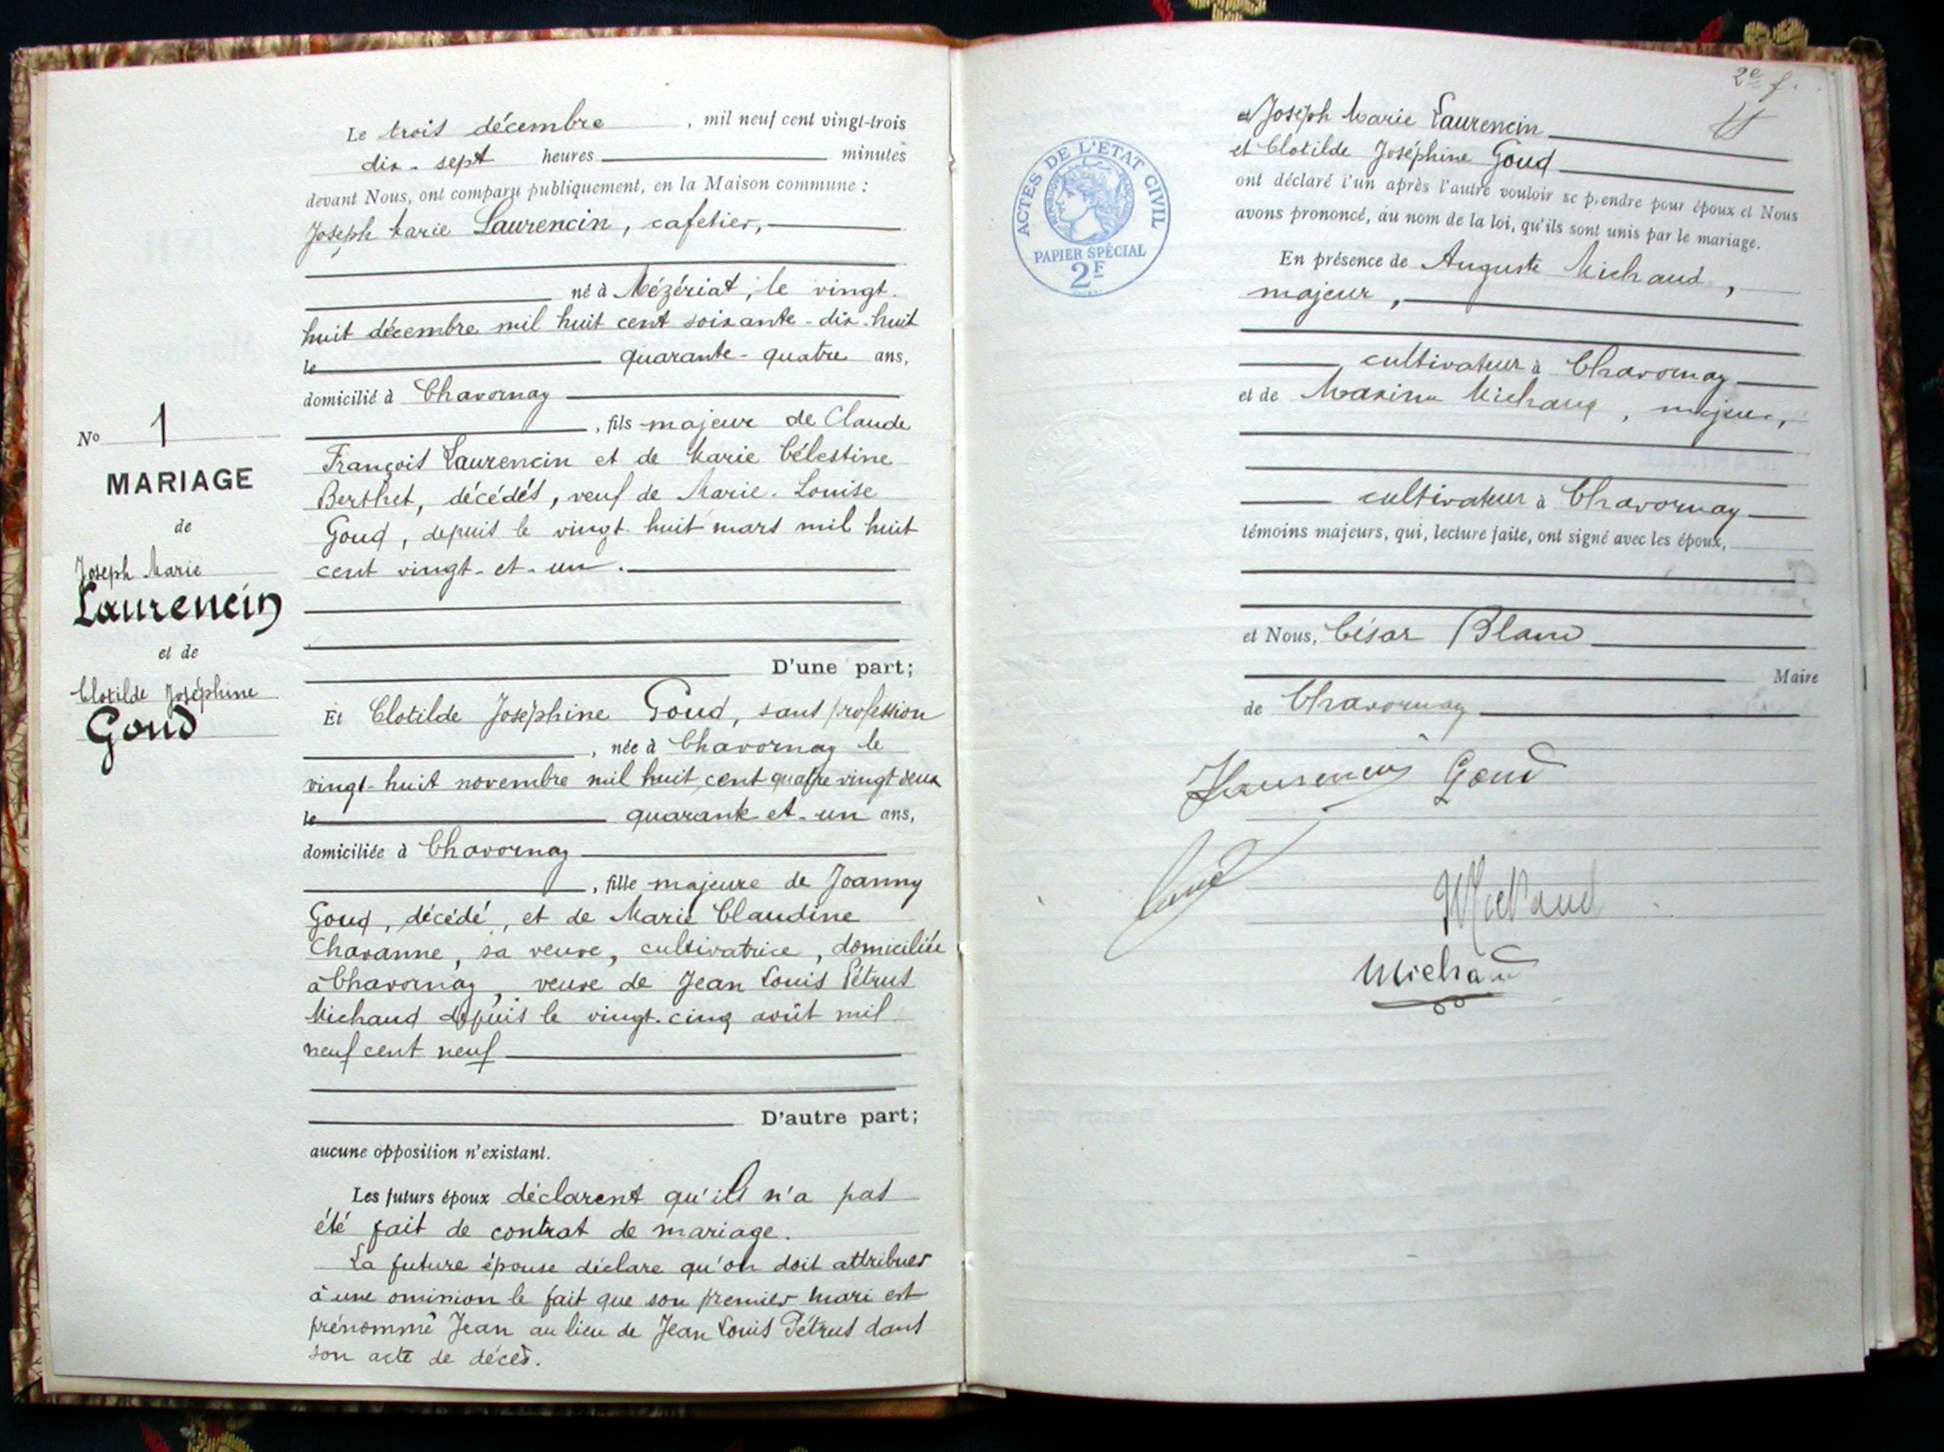 Le trois décembre , mil neuf cent vingt-trois
dix-sept heures minutes
devant Nous, ont comparu publiquement, en la Maison commune :
Joseph Marie Laurencin, cafetier,
né à Mézériat, le vingt-
huit décembre mil huit cent soixante-dix-huit
le quarante-quatre ans,
domicilié à Chavornay
, fils majeur de Claude
François Laurencin et de Marie Célestine
Berthet, décédés, veuf de Marie-Louise
Goud, depuis le vingt huit mars mil huit
cent vingt-et-un.
D'une part;
Et Clotilde Joséphine Goud, sans profession
, née à Chavornay le
vingt-huit novembre mil huit cent quatre vingt deux
le quarante-et-un ans,
domiciliée à Chavornay
, fille majeure de Joanny
Goud, décédé, et de Marie Claudine
Chavanne, sa veuve, cultivatrice, domiciliée
à Chavornay, veuve de Jean Louis Pétrus
Michaud depuis le vingt-cinq août mil
neuf cent neuf
D'autre part;
aucune opposition n'existant.
Les futurs époux déclarent qu'il n'a pas
été fait de contrat de mariage.
La future épouse déclare qu'on doit attribuer
à une omission le fait que son premier mari est
prénommé Jean au lieu de Jean Louis Pétrus dans
son acte de décès.
No 1
MARIAGE
de
Joseph Marie
Laurencin
et de
Clotilde Joséphine
Goud
2e f.
ACTES DE L'ÉTAT CIVIL
PAPIER SPÉCIAL
2F
et Joseph Marie Laurencin
et Clotilde Joséphine Goud
ont déclaré l'un après l'autre vouloir se prendre pour époux et Nous
avons prononcé, au nom de la loi, qu'ils sont unis par le mariage.
En présence de Auguste Michaud,
majeur,
cultivateur à Chavornay
et de Michaud, majeur,
cultivateur à Chavornay
témoins majeurs, qui, lecture faite, ont signé avec les époux,
et Nous, César Blanc
Maire
de Chavornay
Laurencin Goud
Michaud
Michaud